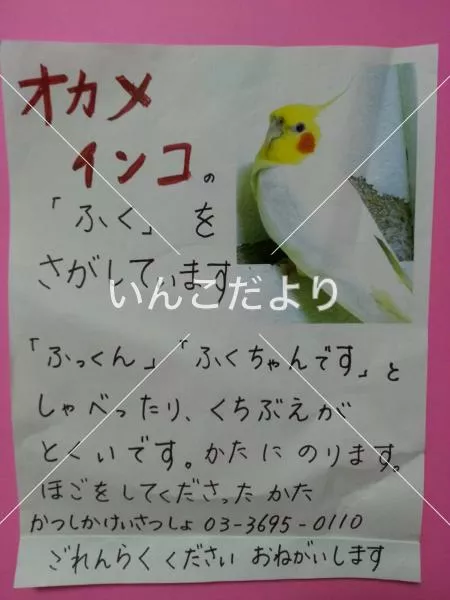 オカメ
インコの
「ふく」を
さがしています
いんこだより
「ふっくん」「ふくちゃんです」と
しゃべったり、くちぶえが
とくいです。かたにのります。
ほごをしてくださったかた
かつしかけいさつしょ 03-3695-0110
ごれんらくください おねがいします